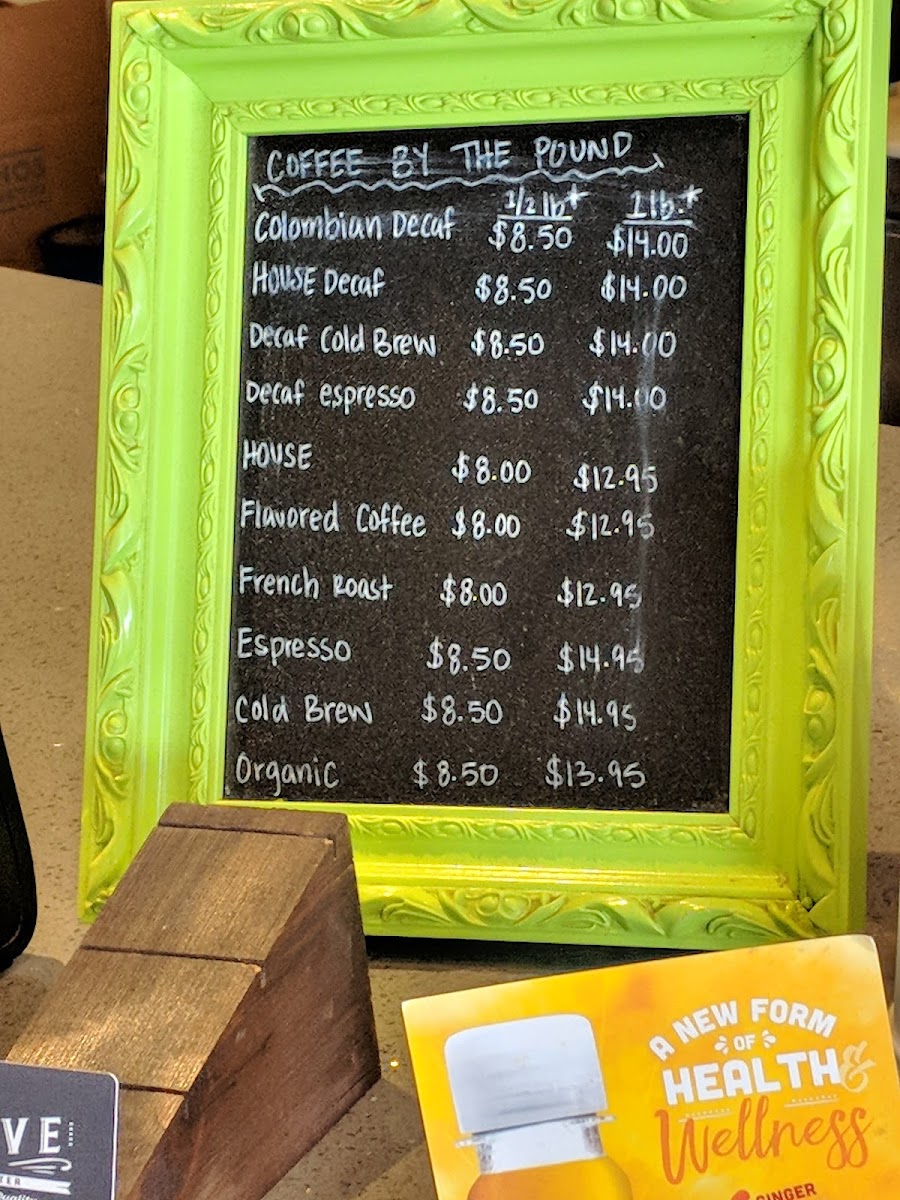 COFFEE BY THE POUND
1/2 lb* 1 lb.*
Colombian Decaf $8.50 $14.00
HOUSE Decaf $8.50 $14.00
Decaf Cold Brew $8.50 $14.00
Decaf espresso $8.50 $14.00
HOUSE $8.00 $12.95
Flavored Coffee $8.00 $12.95
French Roast $8.00 $12.95
Espresso $8.50 $14.95
Cold Brew $8.50 $14.95
Organic $8.50 $13.95
A NEW FORM
OF
HEALTH &
Wellness
GINGER
VE
TER
Quality